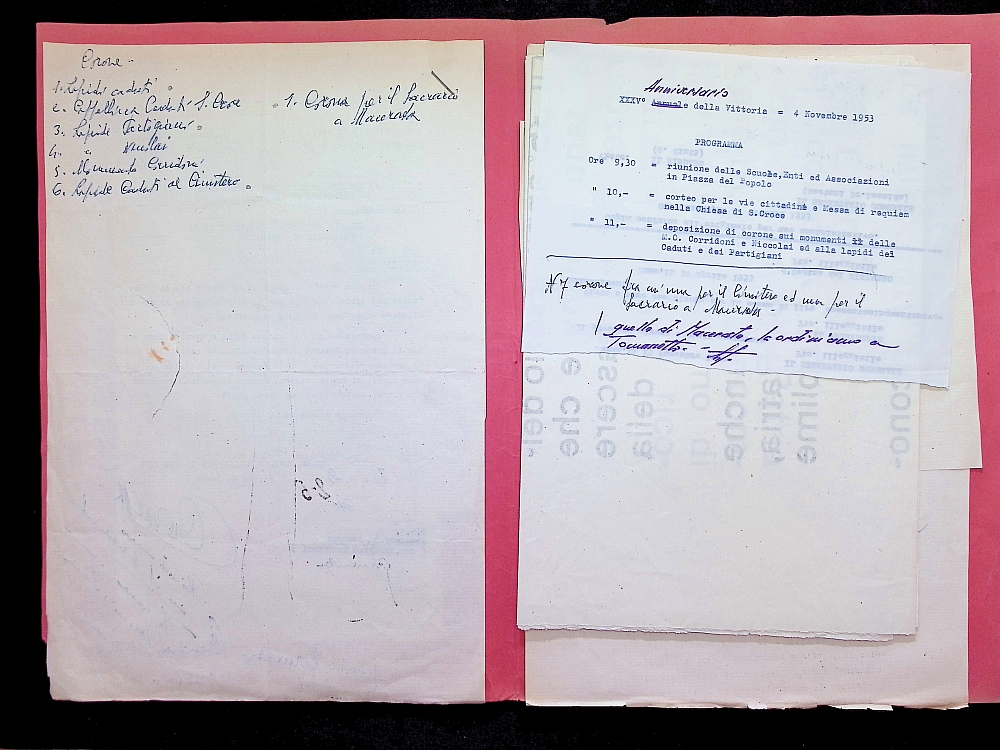 Corone
1. Lapidi caduti
2. Cappellina Caduti S. Croce
3. Lapide Partigiani
4. " Niccolai
5. Monumento Corridoni
6. Lapide Caduti al Cimitero
1. Corona per il Sacrario
a Macerata
Anniversario
XXXVº Annuale della Vittoria = 4 Novembre 1953
PROGRAMMA
Ore 9,30 = riunione delle Scuole,Enti ed Associazioni
in Piazza del Popolo
" 10,- = corteo per le vie cittadine e Messa di requiem
nella Chiesa di S.Croce
" 11,- = deposizione di corone sui monumenti delle
M.O. Corridoni e Niccolai ed alla lapidi dei
Caduti e dei Partigiani
N 7 corone fra cui una per il Cimitero ed una per il
Sacrario a Macerata -
quella di Macerata, la ordiniamo a
e che
scere
della
nche
atria,
olime
cono-